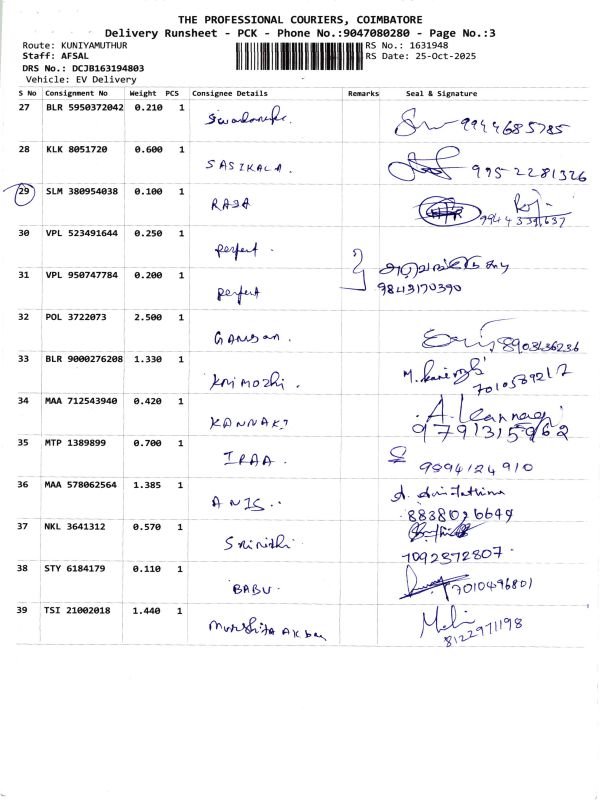 THE PROFESSIONAL COURIERS, COIMBATORE
Delivery Runsheet - PCK - Phone No.:9047080280 - Page No.:3
Route: KUNIYAMUTHUR RS No.: 1631948
Staff: AFSAL RS Date: 25-Oct-2025
DRS No.: DCJB163194803
Vehicle: EV Delivery
S No Consignment No Weight PCS Consignee Details Remarks Seal & Signature
27 BLR 5950372042 0.210 1 9944685785
28 KLK 8051720 0.600 1 SASIKALA. 9952281326
29 SLM 380954038 0.100 1 RAJA Raj
30 VPL 523491644 0.250 1 perfect.
31 VPL 950747784 0.200 1 perfect 9843170390
32 POL 3722073 2.500 1 8903636236
33 BLR 9000276208 1.330 1 7010589217
34 MAA 712543940 0.420 1 KANNAKI 9791315962
35 MTP 1389899 0.700 1 IRAA. 9894124910
36 MAA 578062564 1.385 1 ANIS. 8838026649
37 NKL 3641312 0.570 1 Srinidhi. 7092372807.
38 STY 6184179 0.110 1 BABU. 7010496801
39 TSI 21002018 1.440 1 8122971198